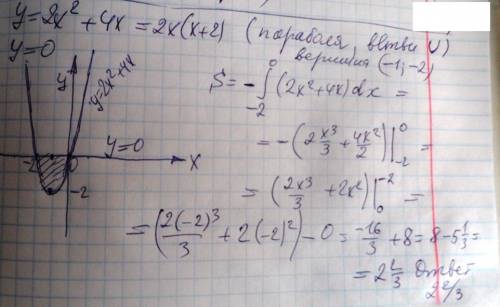 y=2x²+4x=2x(x+2) (парабола, ветви ∪)
вершина (-1;-2)
y=0
y
y=2x²+4x
y=0
x
-2
0
-2
S=-∫₋₂⁰(2x²+4x)dx=
=-(2x³/3+4x²/2)|₋₂⁰=
=(2x³/3+2x²)|₀⁻²=
=(2(-2)³/3+2(-2)²)-0=-16/3+8=8-5 1/3=
=2 2/3 Ответ
2 2/3